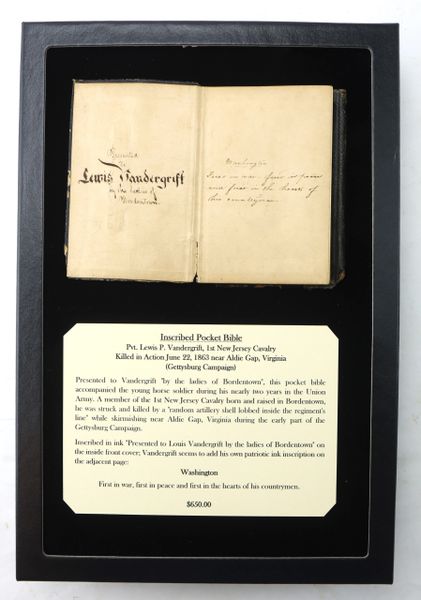 Presented
to
Lewis Vandergrift
by the ladies of
Bordentown.
Washington
First in war. first in peace
and first in the hearts of
his countrymen.
Inscribed Pocket Bible
Pvt. Lewis P. Vandergrift, 1st New Jersey Cavalry
Killed in Action June 22, 1863 near Aldie Gap, Virginia
(Gettysburg Campaign)
Presented to Vandergrift "by the ladies of Bordentown", this pocket bible
accompanied the young horse soldier during his nearly two years in the Union
Army. A member of the 1st New Jersey Cavalry born and raised in Bordentown,
he was struck and killed by a "random artillery shell lobbed inside the regiment's
line" while skirmishing near Aldie Gap, Virginia during the early part of the
Gettysburg Campaign.
Inscribed in ink "Presented to Louis Vandergrift by the ladies of Bordentown" on
the inside front cover; Vandergrift seems to add his own patriotic ink inscription
on the adjacent page:
Washington
First in war, first in peace and first in the hearts of his countrymen.
$650.00